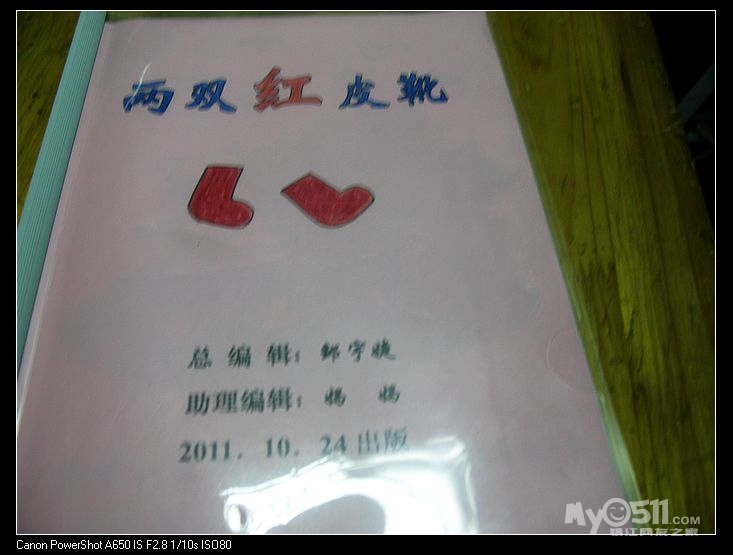 两双红皮靴
总编辑：邹宇婕
助理编辑：妈 妈
2011．10．24出版
My0511.com
镇江网友之家
Canon PowerShot A650 IS F2.8 1/10s ISO80